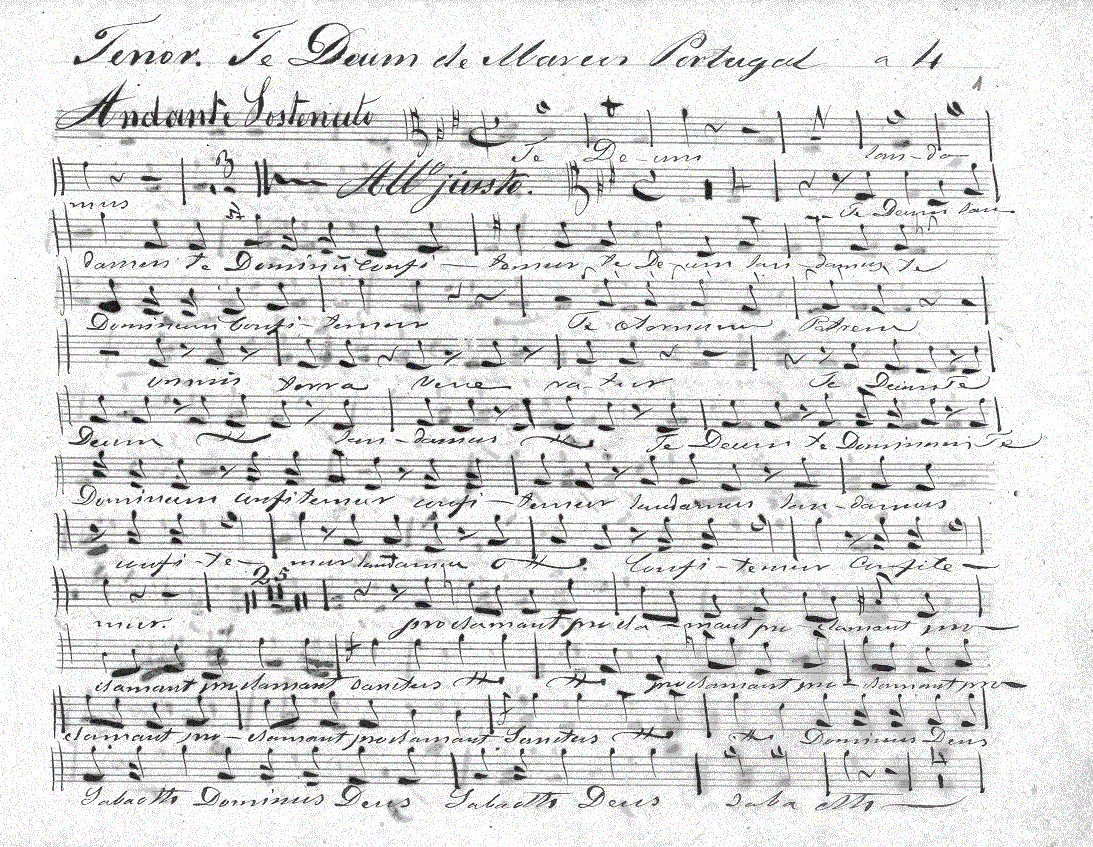 Tenor. Te Deum de Marcos Portugal a 4
1
Andante Sostenuto
Te De-um lau-da
3
All.º justo.
mus Te Deum lau
damus te Dominũ confi-temur te De-um lau-damus te
Dominum confi-temur Te eternum Patrem
omnis terra vene ra-tur Te Deum Te
Deum lau-damus Te Deum te Dominum Te
Dominum confitemur confi-temur laudamus lau-damus
confi-te-mur laudamus Confi-temur Confite-
25
mur. proclamant procla-mant pro clamant pro-
clamant pro clamant sanctus proclamant pro-clamant pro-
clamant pro-clamant proclamant Sanctus Dominus Deus
Sabaoth Dominus Deus Sabaoth Deus saba oth-